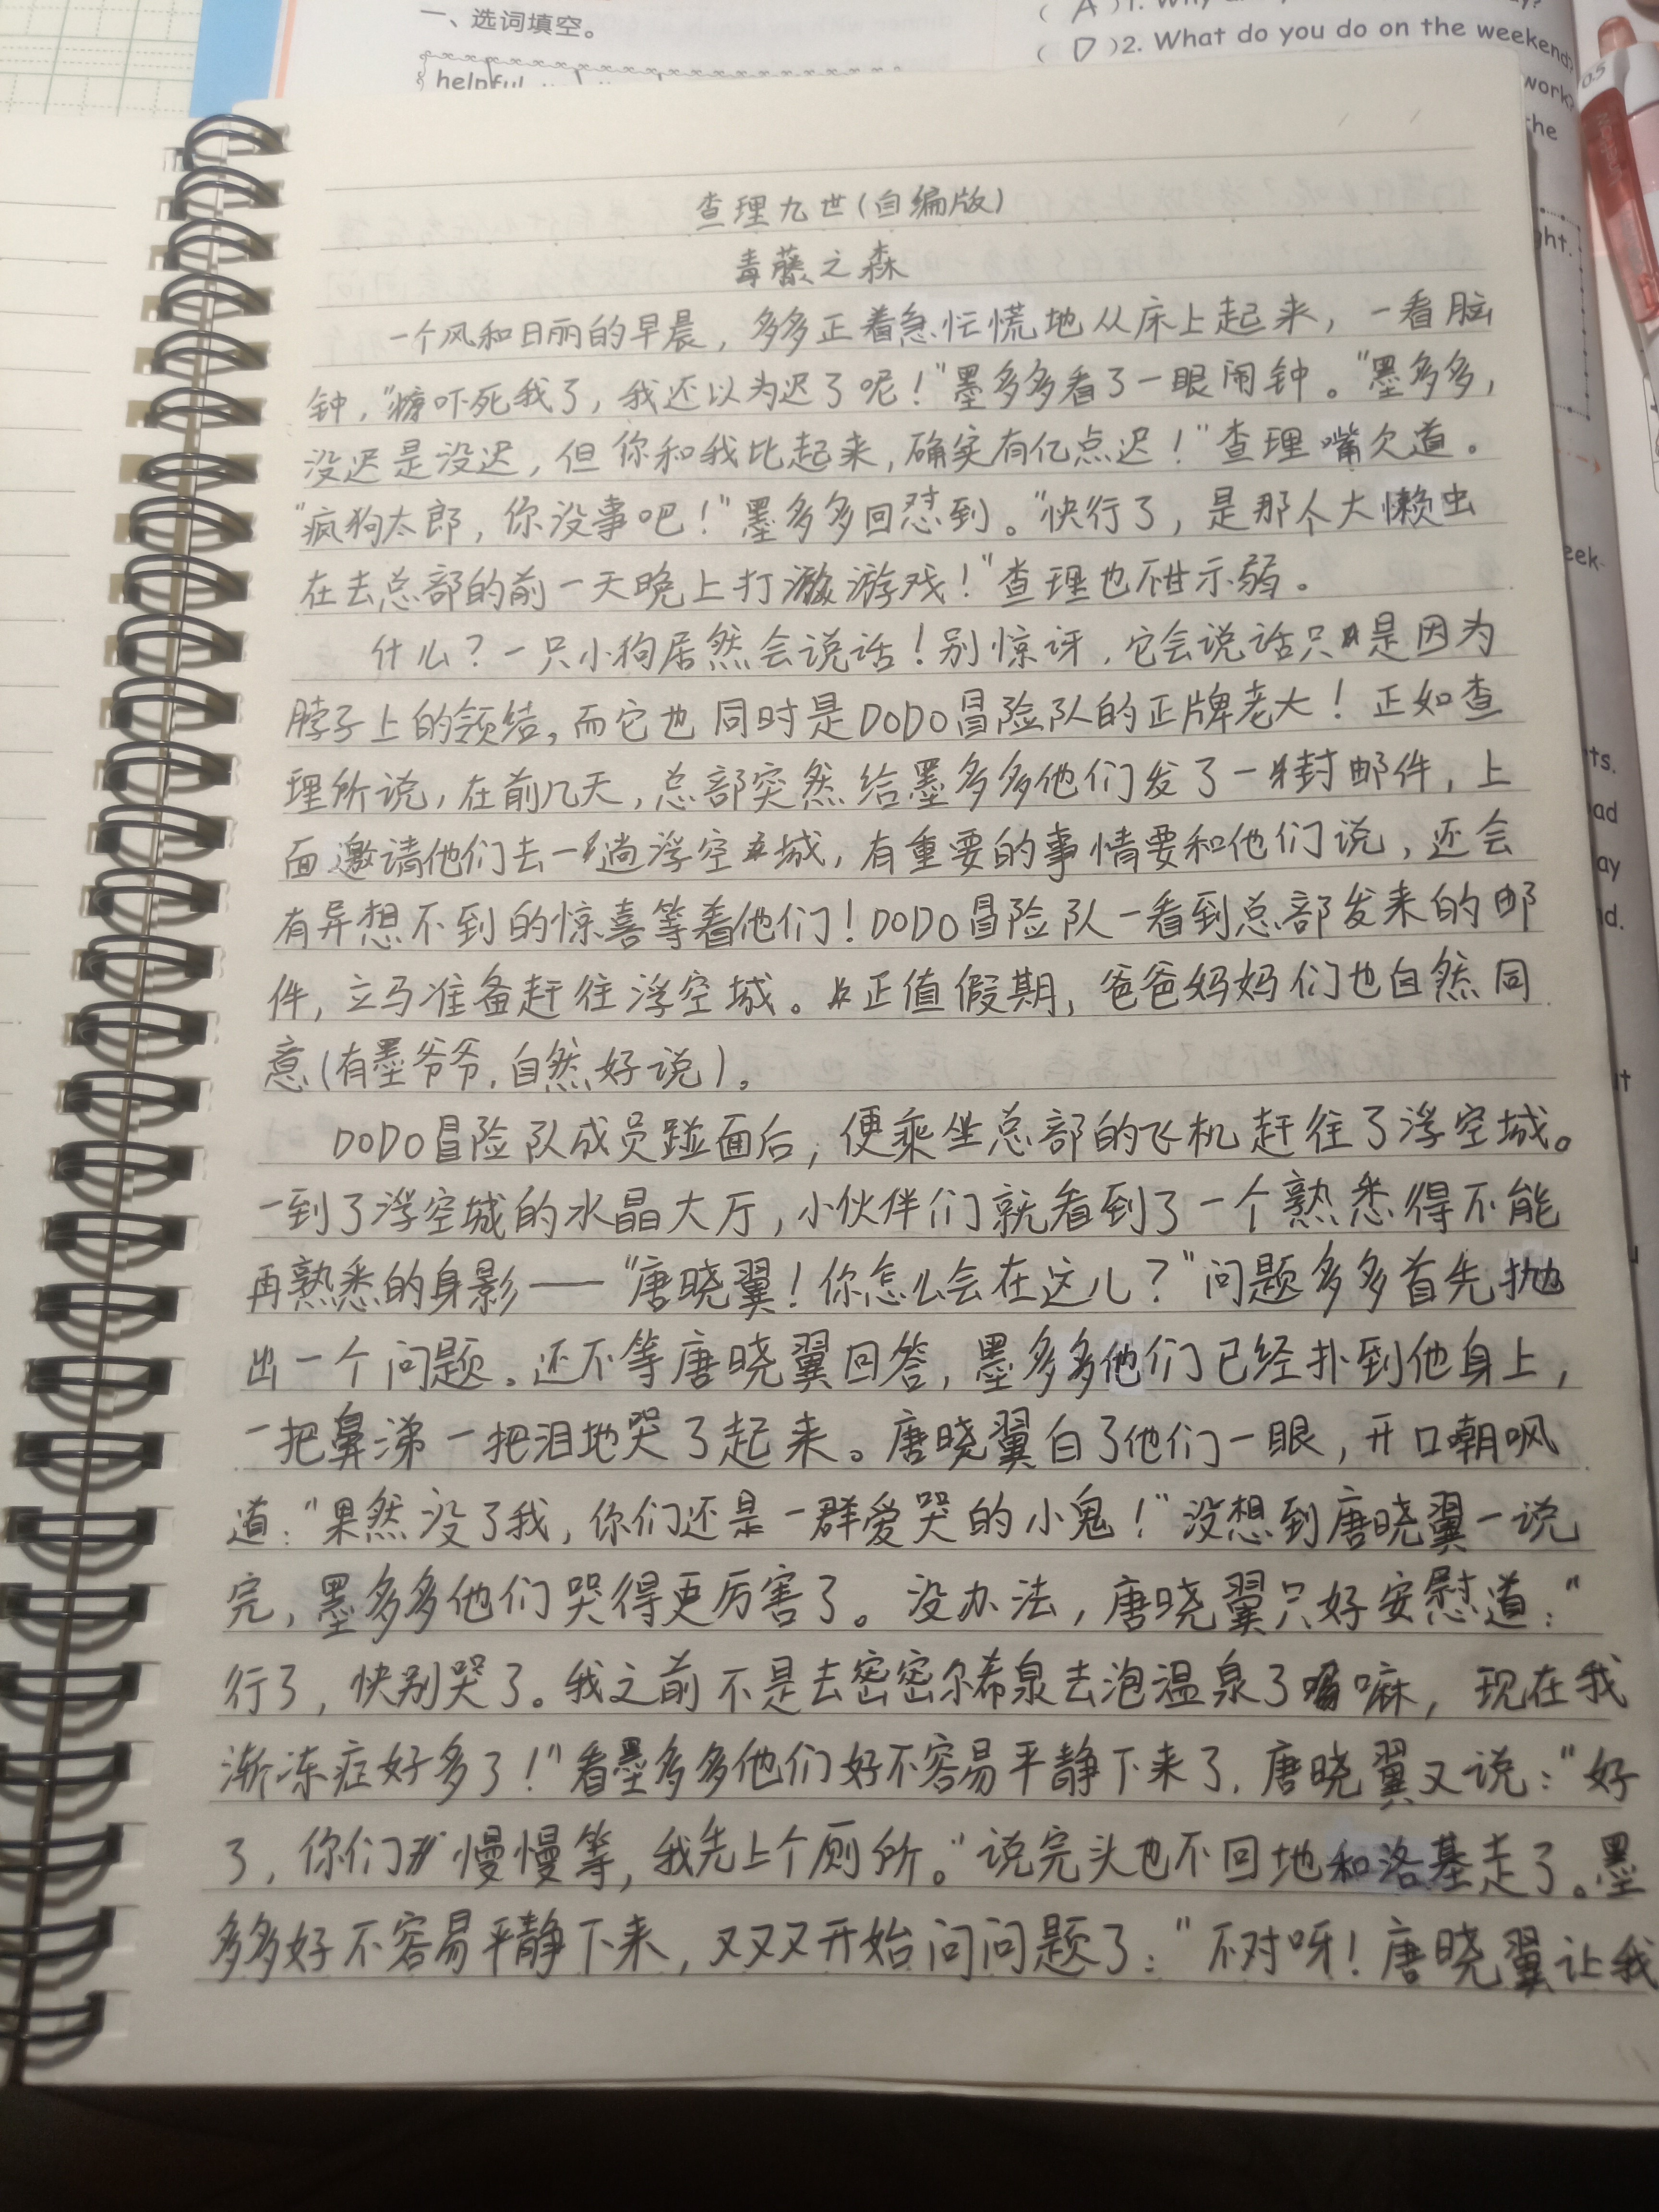 一、选词填空。
helpful
( A )1. Why
( D )2. What do you do on the weekend?
work?
the
ght.
eek
ts.
ad
ay
d.
0.5
查理九世(自编版)
毒藤之森
一个风和日丽的早晨，多多正着急忙慌地从床上起来，一看脑
钟，"吓死我了，我还以为迟了呢！"墨多多看了一眼闹钟。"墨多多，
没迟是没迟，但你和我比起来，确实有亿点迟！"查理嘴欠道。
"疯狗太郎，你没事吧！"墨多多回怼到。"快行了，是那个大懒虫
在去总部的前一天晚上打游戏！"查理也不甘示弱。
什么？一只小狗居然会说话！别惊讶，它会说话只是因为
脖子上的领结，而它也同时是DODO冒险队的正牌老大！正如查
理所说，在前几天，总部突然给墨多多他们发了一封邮件，上
面邀请他们去一趟浮空城，有重要的事情要和他们说，还会
有异想不到的惊喜等着他们！DODO冒险队一看到总部发来的邮
件，立马准备赶往浮空城。正值假期，爸爸妈妈们也自然同
意(有墨爷爷，自然好说)。
DODO冒险队成员碰面后，便乘坐总部的飞机赶往了浮空城。
一到了浮空城的水晶大厅，小伙伴们就看到了一个熟悉得不能
再熟悉的身影——"唐晓翼！你怎么会在这儿？"问题多多首先抛
出一个问题。还不等唐晓翼回答，墨多多他们已经扑到他身上，
一把鼻涕一把泪地哭了起来。唐晓翼白了他们一眼，开口嘲讽
道："果然没了我，你们还是一群爱哭的小鬼！"没想到唐晓翼一说
完，墨多多他们哭得更厉害了。没办法，唐晓翼只好安慰道："
行了，快别哭了。我之前不是去密密尔希泉去泡温泉了嘛，现在我
渐冻症好多了！"看墨多多他们好不容易平静下来了，唐晓翼又说："好
了，你们慢慢等，我先上个厕所。"说完头也不回地和洛基走了。墨
多多好不容易平静下来，又又又开始问问题了："不对呀！唐晓翼让我